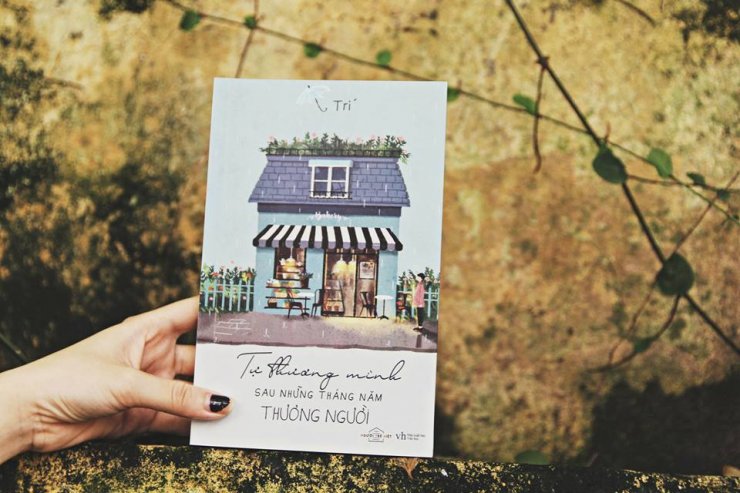 Trí
Bakery
Tự thương mình
SAU NHỮNG THÁNG NĂM
THƯƠNG NGƯỜI
NGƯỜI TRẺ VIỆT
vh